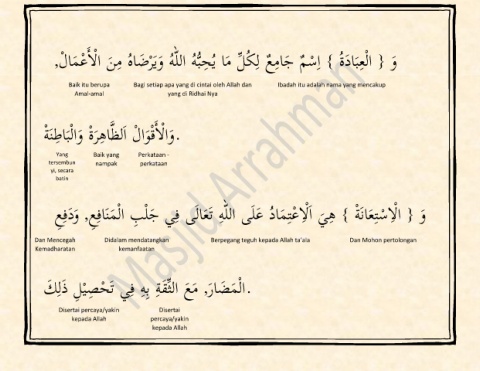 وَ { الْعِبَادَةُ } اِسْمٌ جَامِعٌ لِكُلِّ مَا يُحِبُّهُ اللهُ وَيَرْضَاهُ مِنَ الْأَعْمَالْ,
Ibadah itu adalah nama yang mencakup
Bagi setiap apa yang di cintai oleh Allah dan yang di Ridhai Nya
Baik itu berupa Amal-amal
وَالْأَقْوَالْ اَلظَّاهِرَةْ وَالْبَاطِنَةْ.
Perkataan - perkataan
Baik yang nampak
Yang tersembun yi, secara batin
وَ { الْاِسْتِعَانَةْ } هِيَ اَلْاِعْتِمَادُ عَلَى اللهِ تَعَالَى فِي جَلْبِ الْمَنَافِعِ, وَدَفِعِ
Dan Mohon pertolongan
Berpegang teguh kepada Allah ta'ala
Didalam mendatangkan kemanfaatan
Dan Mencegah Kemadharatan
الْمَضَارَ, مَعَ الثِّقَةِ بِهِ فِي تَحْصِيْلِ ذَلِكَ.
Disertai percaya/yakin kepada Allah
Disertai percaya/yakin kepada Allah
Masjid Arrahmah